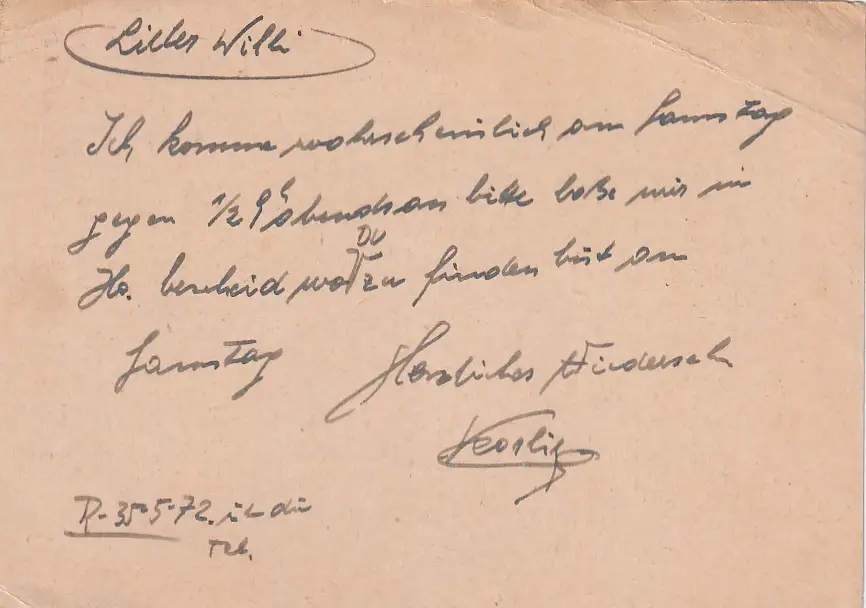 Lieber Willi
Ich komme wahrscheinlich am Samstag
gegen 1/2 9h abends an bitte laße mir im
Ho. bescheid wo DU zu finden bist am
Samstag Herzliches Wiedersehn
R-35-5-72. ist die
Tel.